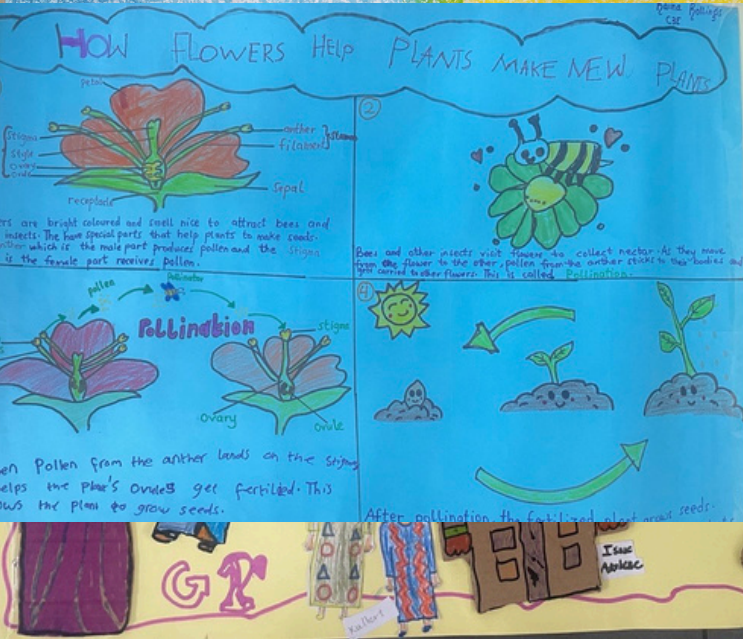 C3E
HOW FLOWERS HELP PLANTS MAKE NEW PLANTS
petal
Stigma
style
ovary
anther
filament
sepal
ers are bright coloured and smell nice to attract bees and
insects. The have special parts that help plants to make seeds.
which is the male part produces pollen and the Stigma
is the female part receives pollen.
2
Bees and other insects visit flowers to collect nectar. As they move
from one flower to the other, pollen from the anther sticks to their bodies and
get carried to other flowers. This is called Pollination.
pollen
Pollinator
Pollination
stigma
Ovary
Ovule
en Pollen from the anther lands on the Stigma
elps the Plant's Ovules get fertilized. This
ows the plant to grow seeds.
4
After pollination, the fertilized plant grows seeds.
GR
Isaac